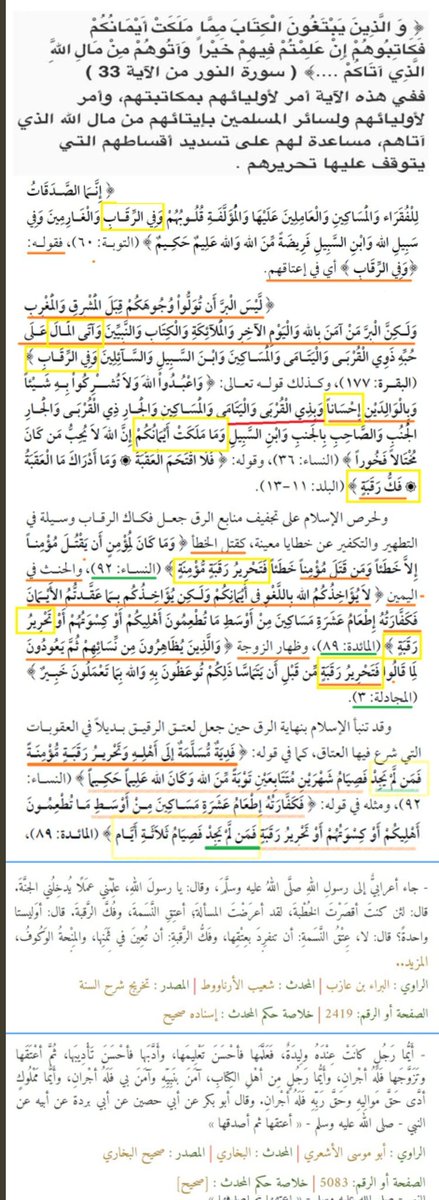 ﴿ وَ الَّذِينَ يَبْتَغُونَ الْكِتَابَ مِمَّا مَلَكَتْ أَيْمَانُكُمْ
فَكَاتِبُوهُمْ إِنْ عَلِمْتُمْ فِيهِمْ خَيْراً وَآتُوهُمْ مِنْ مَالِ اللَّهِ
الَّذِي آتَاكُمْ ....﴾ ( سورة النور من الآية 33 )
ففي هذه الآية أمر لأوليائهم بمكاتبتهم، وأمر
لأوليائهم ولسائر المسلمين بإيتائهم من مال الله الذي
آتاهم، مساعدة لهم على تسديد أقساطهم التي
يتوقف عليها تحريرهم .
﴿ إِنَّمَا الصَّدَقَاتُ
لِلْفُقَرَاء وَالْمَسَاكِينِ وَالْعَامِلِينَ عَلَيْهَا وَالْمُؤَلَّفَةِ قُلُوبُهُمْ وَفِي الرِّقَابِ وَالْغَارِمِينَ وَفِي
سَبِيلِ اللهِ وَابْنِ السَّبِيلِ فَرِيضَةً مِّنَ اللهِ وَاللهُ عَلِيمٌ حَكِيمٌ ﴾ (التوبة: ٦٠)، فقوله:
﴿وَفِي الرِّقَابِ ﴾ أي في إعتاقهم.
﴿ لَيْسَ الْبِرَّ أَن تُوَلُّواْ وُجُوهَكُمْ قِبَلَ الْمَشْرِقِ وَالْمَغْرِبِ
وَلَكِنَّ الْبِرَّ مَنْ آمَنَ بِاللهِ وَالْيَوْمِ الآخِرِ وَالْمَلآئِكَةِ وَالْكِتَابِ وَالنَّبِيِّينَ وَآتَى الْمَالَ عَلَى
حُبِّهِ ذَوِي الْقُرْبَى وَالْيَتَامَى وَالْمَسَاكِينَ وَابْنَ السَّبِيلِ وَالسَّآئِلِينَ وَفِي الرِّقَابِ ﴾
(البقرة: ١٧٧)، وكذلك قوله تعالى: ﴿ وَاعْبُدُواْ اللهَ وَلاَ تُشْرِكُواْ بِهِ شَيْئاً
وَبِالْوَالِدَيْنِ إِحْسَاناً وَبِذِي الْقُرْبَى وَالْيَتَامَى وَالْمَسَاكِينِ وَالْجَارِ ذِي الْقُرْبَى وَالْجَارِ
الْجُنُبِ وَالصَّاحِبِ بِالجَنبِ وَابْنِ السَّبِيلِ وَمَا مَلَكَتْ أَيْمَانُكُمْ إِنَّ اللهَ لاَ يُحِبُّ مَن كَانَ
مُخْتَالاً فَخُوراً ﴾ (النساء: ٣٦)، وقوله: ﴿ فَلَا اقْتَحَمَ الْعَقَبَةَ ۞ وَمَا أَدْرَاكَ مَا الْعَقَبَةُ
۞ فَكُّ رَقَبَةٍ ﴾ (البلد: ١١-١٣).
ولحرص الإسلام على تجفيف منابع الرق جعل فكاك الرقاب وسيلة في
التطهير والتكفير عن خطايا معينة، كقتل الخطأ ﴿ وَمَا كَانَ لِمُؤْمِنٍ أَن يَقْتُلَ مُؤْمِناً
إِلاَّ خَطَئاً وَمَن قَتَلَ مُؤْمِناً خَطَئاً فَتَحْرِيرُ رَقَبَةٍ مُّؤْمِنَةٍ ﴾ (النساء: ٩٢)، والحنث في
اليمين ﴿ لاَ يُؤَاخِذُكُمُ اللهُ بِاللَّغْوِ فِي أَيْمَانِكُمْ وَلَكِن يُؤَاخِذُكُم بِمَا عَقَّدتُّمُ الأَيْمَانَ
فَكَفَّارَتُهُ إِطْعَامُ عَشَرَةِ مَسَاكِينَ مِنْ أَوْسَطِ مَا تُطْعِمُونَ أَهْلِيكُمْ أَوْ كِسْوَتُهُمْ أَوْ تَحْرِيرُ
رَقَبَةٍ ﴾ (المائدة: ٨٩)، وظهار الزوجة ﴿ وَالَّذِينَ يُظَاهِرُونَ مِن نِّسَائِهِمْ ثُمَّ يَعُودُونَ
لِمَا قَالُوا فَتَحْرِيرُ رَقَبَةٍ مِّن قَبْلِ أَن يَتَمَاسَّا ذَلِكُمْ تُوعَظُونَ بِهِ وَاللهُ بِمَا تَعْمَلُونَ خَبِيرٌ ﴾
(المجادلة: ٣).
وقد تنبأ الإسلام بنهاية الرق حين جعل لعتق الرقيق بديلاً في العقوبات
التي شرع فيها العتاق، كما في قوله: ﴿ فَدِيَةٌ مُّسَلَّمَةٌ إِلَى أَهْلِهِ وَتَحْرِيرُ رَقَبَةٍ مُّؤْمِنَةً
فَمَن لَّمْ يَجِدْ فَصِيَامُ شَهْرَيْنِ مُتَتَابِعَيْنِ تَوْبَةً مِّنَ اللهِ وَكَانَ اللهُ عَلِيماً حَكِيماً ﴾ (النساء:
٩٢)، ومثله في قوله: ﴿ فَكَفَّارَتُهُ إِطْعَامُ عَشَرَةِ مَسَاكِينَ مِنْ أَوْسَطِ مَا تُطْعِمُونَ
أَهْلِيكُمْ أَوْ كِسْوَتُهُمْ أَوْ تَحْرِيرُ رَقَبَةٍ فَمَن لَّمْ يَجِدْ فَصِيَامُ ثَلاَثَةِ أَيَّامٍ ﴾ (المائدة: ٨٩)،
- جاء أعرابيٌّ إلى رسولِ اللهِ صلَّى اللهُ عليه وسلَّمَ، وقال: يا رسولَ اللهِ، علِّمْني عمَلًا يُدخِلُني الجنَّةَ.
قال: لئن كنتَ أقصَرْتَ الخُطْبةَ، لقد أعرَضتَ المسألةَ؛ أعتِقِ النَّسَمةَ، وفُكَّ الرَّقَبةَ. قال: أوليستا
واحدةً؟ قال: لا، عِتْقُ النَّسَمةِ: أن تنفرِدَ بعِتْقِها، وفَكُّ الرَّقَبةِ: أن تُعِينَ في ثَمَنِها، والمِنْحةُ الوَكُوفُ،
المزيد..
الراوي : البراء بن عازب | المحدث : شعيب الأرناؤوط | المصدر : تخريج شرح السنة
الصفحة أو الرقم: 2419 | خلاصة حكم المحدث : إسناده صحيح
- أيُّما رَجُلٍ كانَتْ عِنْدَهُ ولِيدَةٌ، فَعَلَّمَها فأحْسَنَ تَعْلِيمَها، وأَدَّبَها فأحْسَنَ تَأْدِيبَها، ثُمَّ أعْتَقَها
وتَزَوَّجَها فَلَهُ أجْرانِ، وأَيُّما رَجُلٍ مِن أهْلِ الكِتابِ، آمَنَ بنَبِيِّهِ وآمَنَ بي فَلَهُ أجْرانِ، وأَيُّما مَمْلُوكٍ
أدَّى حَقَّ مَوالِيهِ وحَقَّ رَبِّهِ فَلَهُ أجْرانِ. وقال أبو بكر عن أبي حصين عن أبي بردة عن أبيه عن
النبي - صلى الله عليه وسلم - « أعتقها ثم أصدقها »
الراوي : أبو موسى الأشعري | المحدث : البخاري | المصدر : صحيح البخاري
الصفحة أو الرقم: 5083 | خلاصة حكم المحدث : [صحيح]